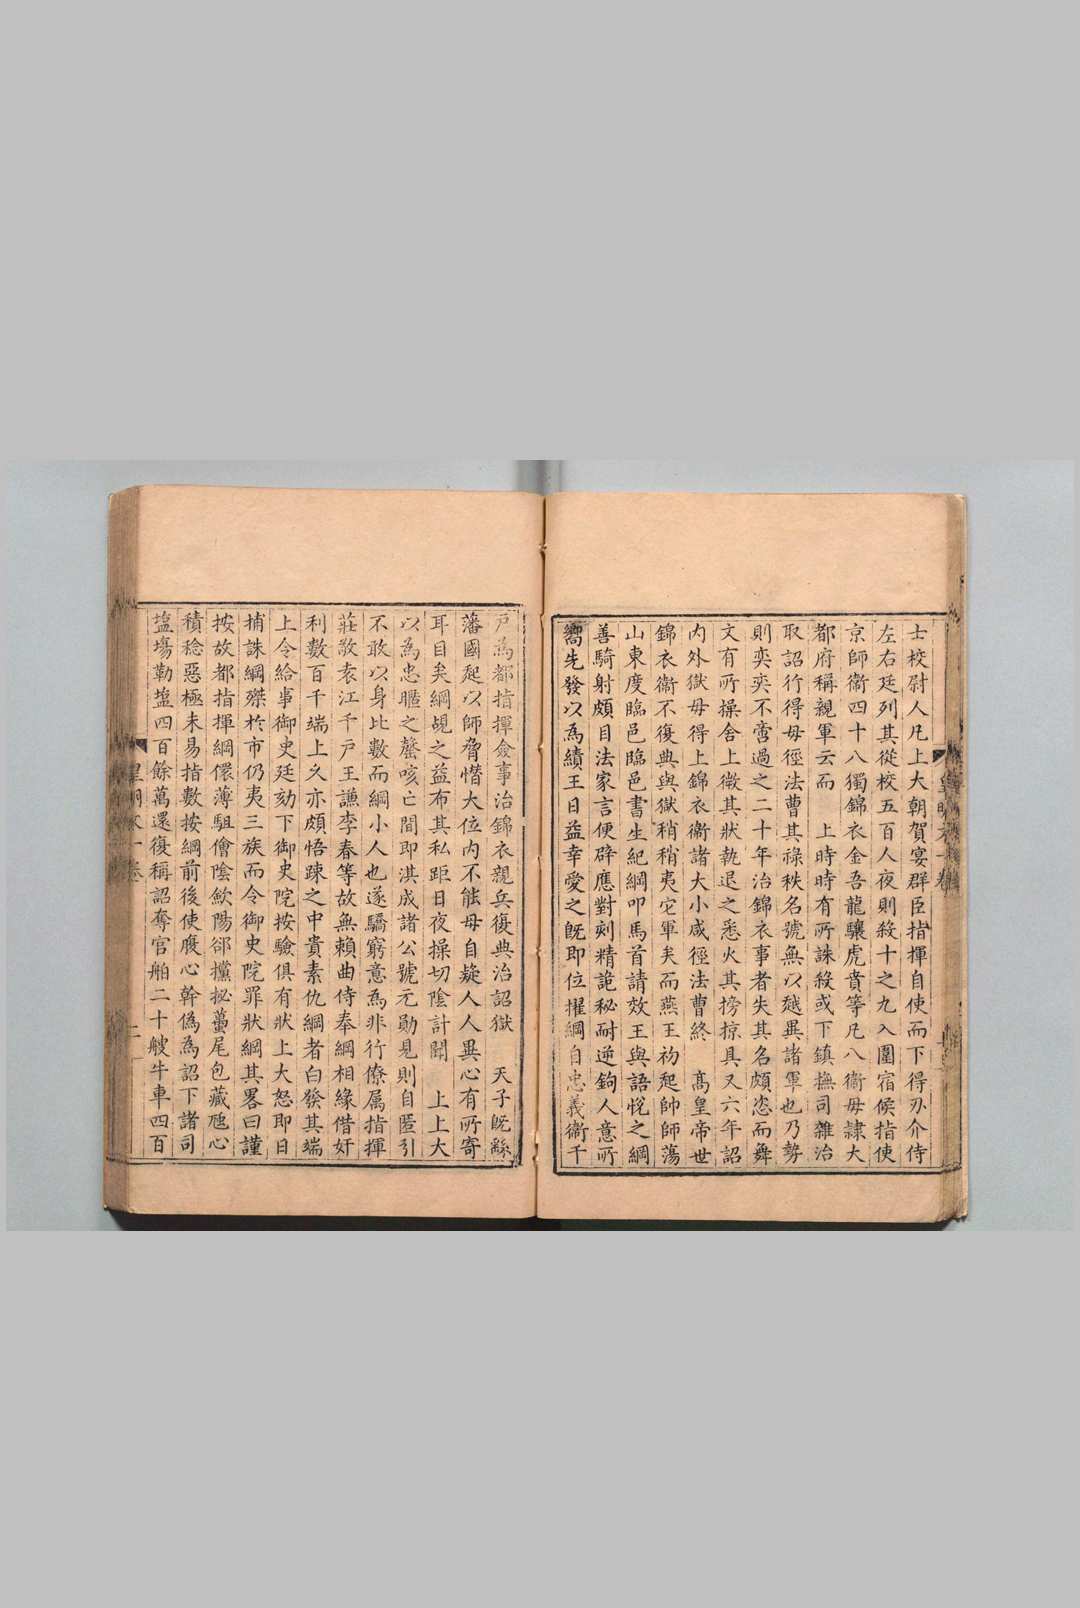 士校尉人凡上大朝賀宴群臣指揮自使而下得刃介侍
左右廷列其從校五百人夜則殺十之九入圍宿候指使
京師衛四十八獨錦衣金吾龍驤虎賁等凡八衛毋隷大
都府稱親軍云而　上時時有所誅殺或下鎮撫司雜治
取詔行得毋徑法曹其祿秩名號無以越異諸軍也乃勢
則奕奕不啻過之二十年治錦衣事者失其名頗恣而舞
文有所操舍上徵其狀執退之悉火其搒掠具又六年詔
内外獄毋得上錦衣衛諸大小咸徑法曹終　高皇帝世
錦衣衛不復典與獄稍稍夷它軍矣而燕王初起帥師蕩
山東度臨邑臨邑書生紀綱叩馬首請效王與語悅之綱
善騎射頗目法家言便辟應對刻精詭秘耐逆鉤人意所
嚮先發以為績王日益幸愛之既即位擢綱自忠義衛千
戸為都指揮僉事治錦衣親兵復典治詔獄　天子既繇
藩國起以師脅僭大位内不能毋自疑人人異心有所寄
耳目矣綱覘之益布其私距日夜操切陰計聞　上上大
以為忠暱之謦咳亡間即淇成諸公號元勛見則自匿引
不敢以身比數而綱小人也遂驕窮意為非行僚属指揮
莊敬袁江千戸王謙李春等故無賴曲侍奉綱相緣借奸
利數百千端上久亦頗悟踈之中貴素仇綱者白發其端
上令給事御史廷劾下御史院按驗俱有狀上大怒即日
捕誅綱磔於市仍夷三族而令御史院罪狀綱其畧曰謹
按故都指揮綱儇薄駔儈陰歙陽郤攩挱蠆尾包藏虺心
積稔惡極未易指數按綱前後使腹心幹偽為詔下諸司
塩塲勒塩四百餘萬還復稱詔奪官舶二十艘牛車四百